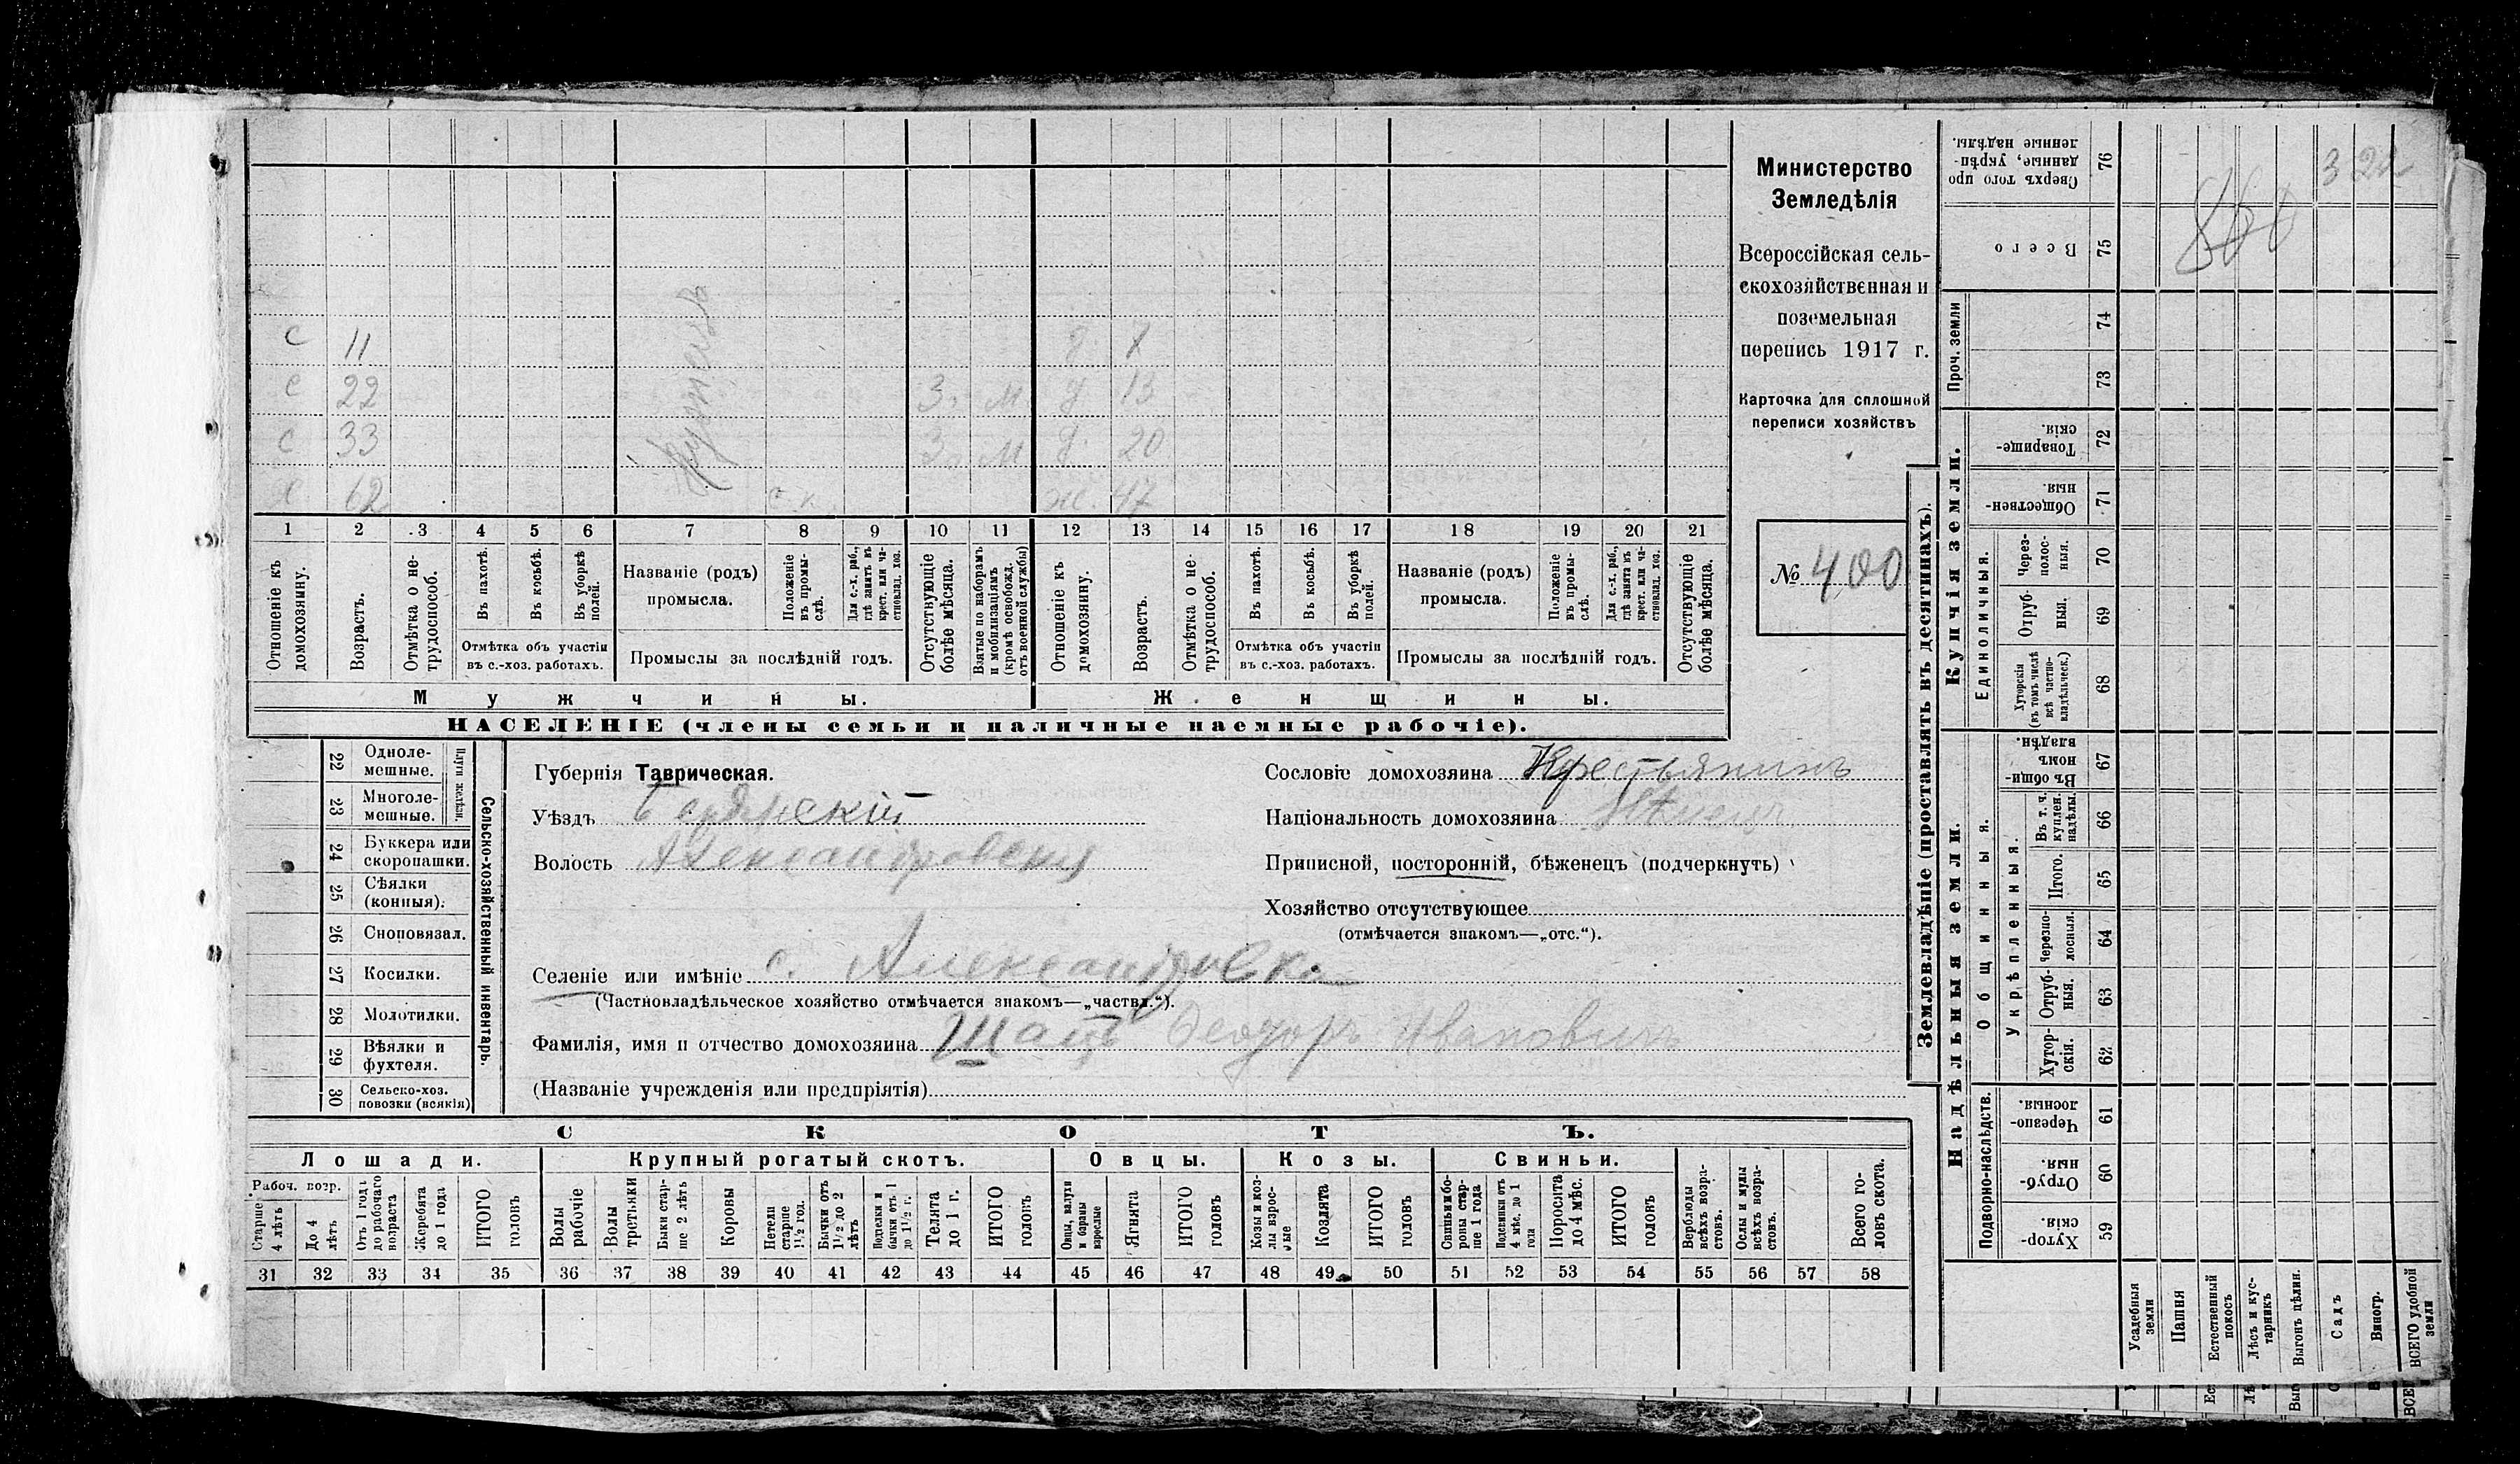 Министерство
Земледѣлія
Всероссійская сель-
скохозяйственная и
поземельная
перепись 1917 г.
Карточка для сплошной
переписи хозяйствъ
№ 400
с 11 д
с 22 3. м д 13
с 33 3. м д 20
х 62 ж. 47
1 2 3 4 5 6 7 8 9 10 11 12 13 14 15 16 17 18 19 20 21
Отношеніе къ домохозяину.
Возрастъ.
Отмѣтка о не-трудоспособ.
Въ пахотѣ.
Въ косьбѣ.
Въ уборкѣ полей.
Отмѣтка объ участіи въ с.-хоз. работахъ.
Названіе (родъ) промысла.
Положеніе въ промы-слѣ.
Для с.-х. раб., гдѣ занятъ въ крест. или ча-стновлад. хоз.
Промыслы за послѣдній годъ.
Отсутствующіе болѣе мѣсяца.
Взятые по наборамъ и мобилизаціямъ (кромѣ освобожд. отъ военной службы)
Отношеніе къ домохозяину.
Возрастъ.
Отмѣтка о не-трудоспособ.
Въ пахотѣ.
Въ косьбѣ.
Въ уборкѣ полей.
Отмѣтка объ участіи въ с.-хоз. работахъ.
Названіе (родъ) промысла.
Положеніе въ промы-слѣ.
Для с.-х. раб., гдѣ занята въ крест. или ча-стновлад. хоз.
Промыслы за послѣдній годъ.
Отсутствующіе болѣе мѣсяца.
Мужчины. Женщины.
НАСЕЛЕНІЕ (члены семьи и наличные наемные рабочіе).
22 Одноле-мешные.
23 Многоле-мешные.
Плуги желѣзн.
24 Буккера или скоропашки.
25 Сѣялки (конныя).
26 Сноповязал.
27 Косилки.
28 Молотилки.
29 Вѣялки и фухтеля.
30 Сельско-хоз. повозки (всякія)
Сельско-хозяйственный инвентарь.
Губернія Таврическая.
Уѣздъ Бердянскій
Волость Александровская
Селеніе или имѣніе с. Александровка
(Частновладѣльческое хозяйство отмѣчается знакомъ—„частвл.“).
Фамилія, имя и отчество домохозяина Шацъ Феодоръ Ивановичъ
(Названіе учрежденія или предпріятія)
Сословіе домохозяина Крестьянинъ
Національность домохозяина
Приписной, посторонній, бѣженецъ (подчеркнуть)
Хозяйство отсутствующее
(отмѣчается знакомъ—„отс.“).
СКОТЪ.
Лошади. Крупный рогатый скотъ. Овцы. Козы. Свиньи.
Рабоч. возр.
Старше 4 лѣтъ
До 4 лѣтъ
Отъ 1 года до рабочаго возраста
Жеребята до 1 года
ИТОГО головъ
Волы рабочіе
Волы третьяки
Быки стар-ше 2 лѣтъ
Коровы
Нетели старше 1½ год.
Бычки отъ 1½ до 2 лѣтъ
Подтелки и бычки отъ 1 до 1½ г.
Телята до 1 г.
ИТОГО головъ
Овцы, валухи и бараны взрослые
Ягнята
ИТОГО головъ
Козы и коз-лы взрос-лые
Козлята
ИТОГО головъ
Свиньи и бо-ровы стар-ше 1 года
Подсвинки отъ 4 мѣс. до 1 года
Поросята до 4 мѣс.
ИТОГО головъ
Верблюды всѣхъ возра-стовъ.
Ослы и мулы всѣхъ возра-стовъ.
Всего го-ловъ скота.
31 32 33 34 35 36 37 38 39 40 41 42 43 44 45 46 47 48 49 50 51 52 53 54 55 56 57 58
Землевладѣніе (проставлять въ десятинахъ).
Купчія земли.
Надѣльныя земли.
Сверхъ того про данные, укрѣп-ленные надѣлы. 76
Всего 75
Проч. земли 74
73
Товарище-скія. 72
Обществен-ныя. 71
Единоличныя.
Через-полос-ныя. 70
Отруб-ныя. 69
Хуторскія (въ томъ числѣ всѣ частно-владѣльческ.) 68
Общинныя.
Въ общи-номъ владѣн. 67
Укрѣпленныя.
Въ т. ч. куплен. надѣлы. 66
Итого. 65
Черезпо-лосныя. 64
Отруб-ныя. 63
Хутор-скія. 62
Подворно-наслѣдств.
Черезпо-лосныя. 61
Отруб-ныя. 60
Хутор-скія. 59
Усадебныя земли
Пашня
Естественный покосъ
Лѣсъ и кус-тарникъ
Выгонъ цѣлин.
Садъ
Виногр.
ВСЕГО удобной земли